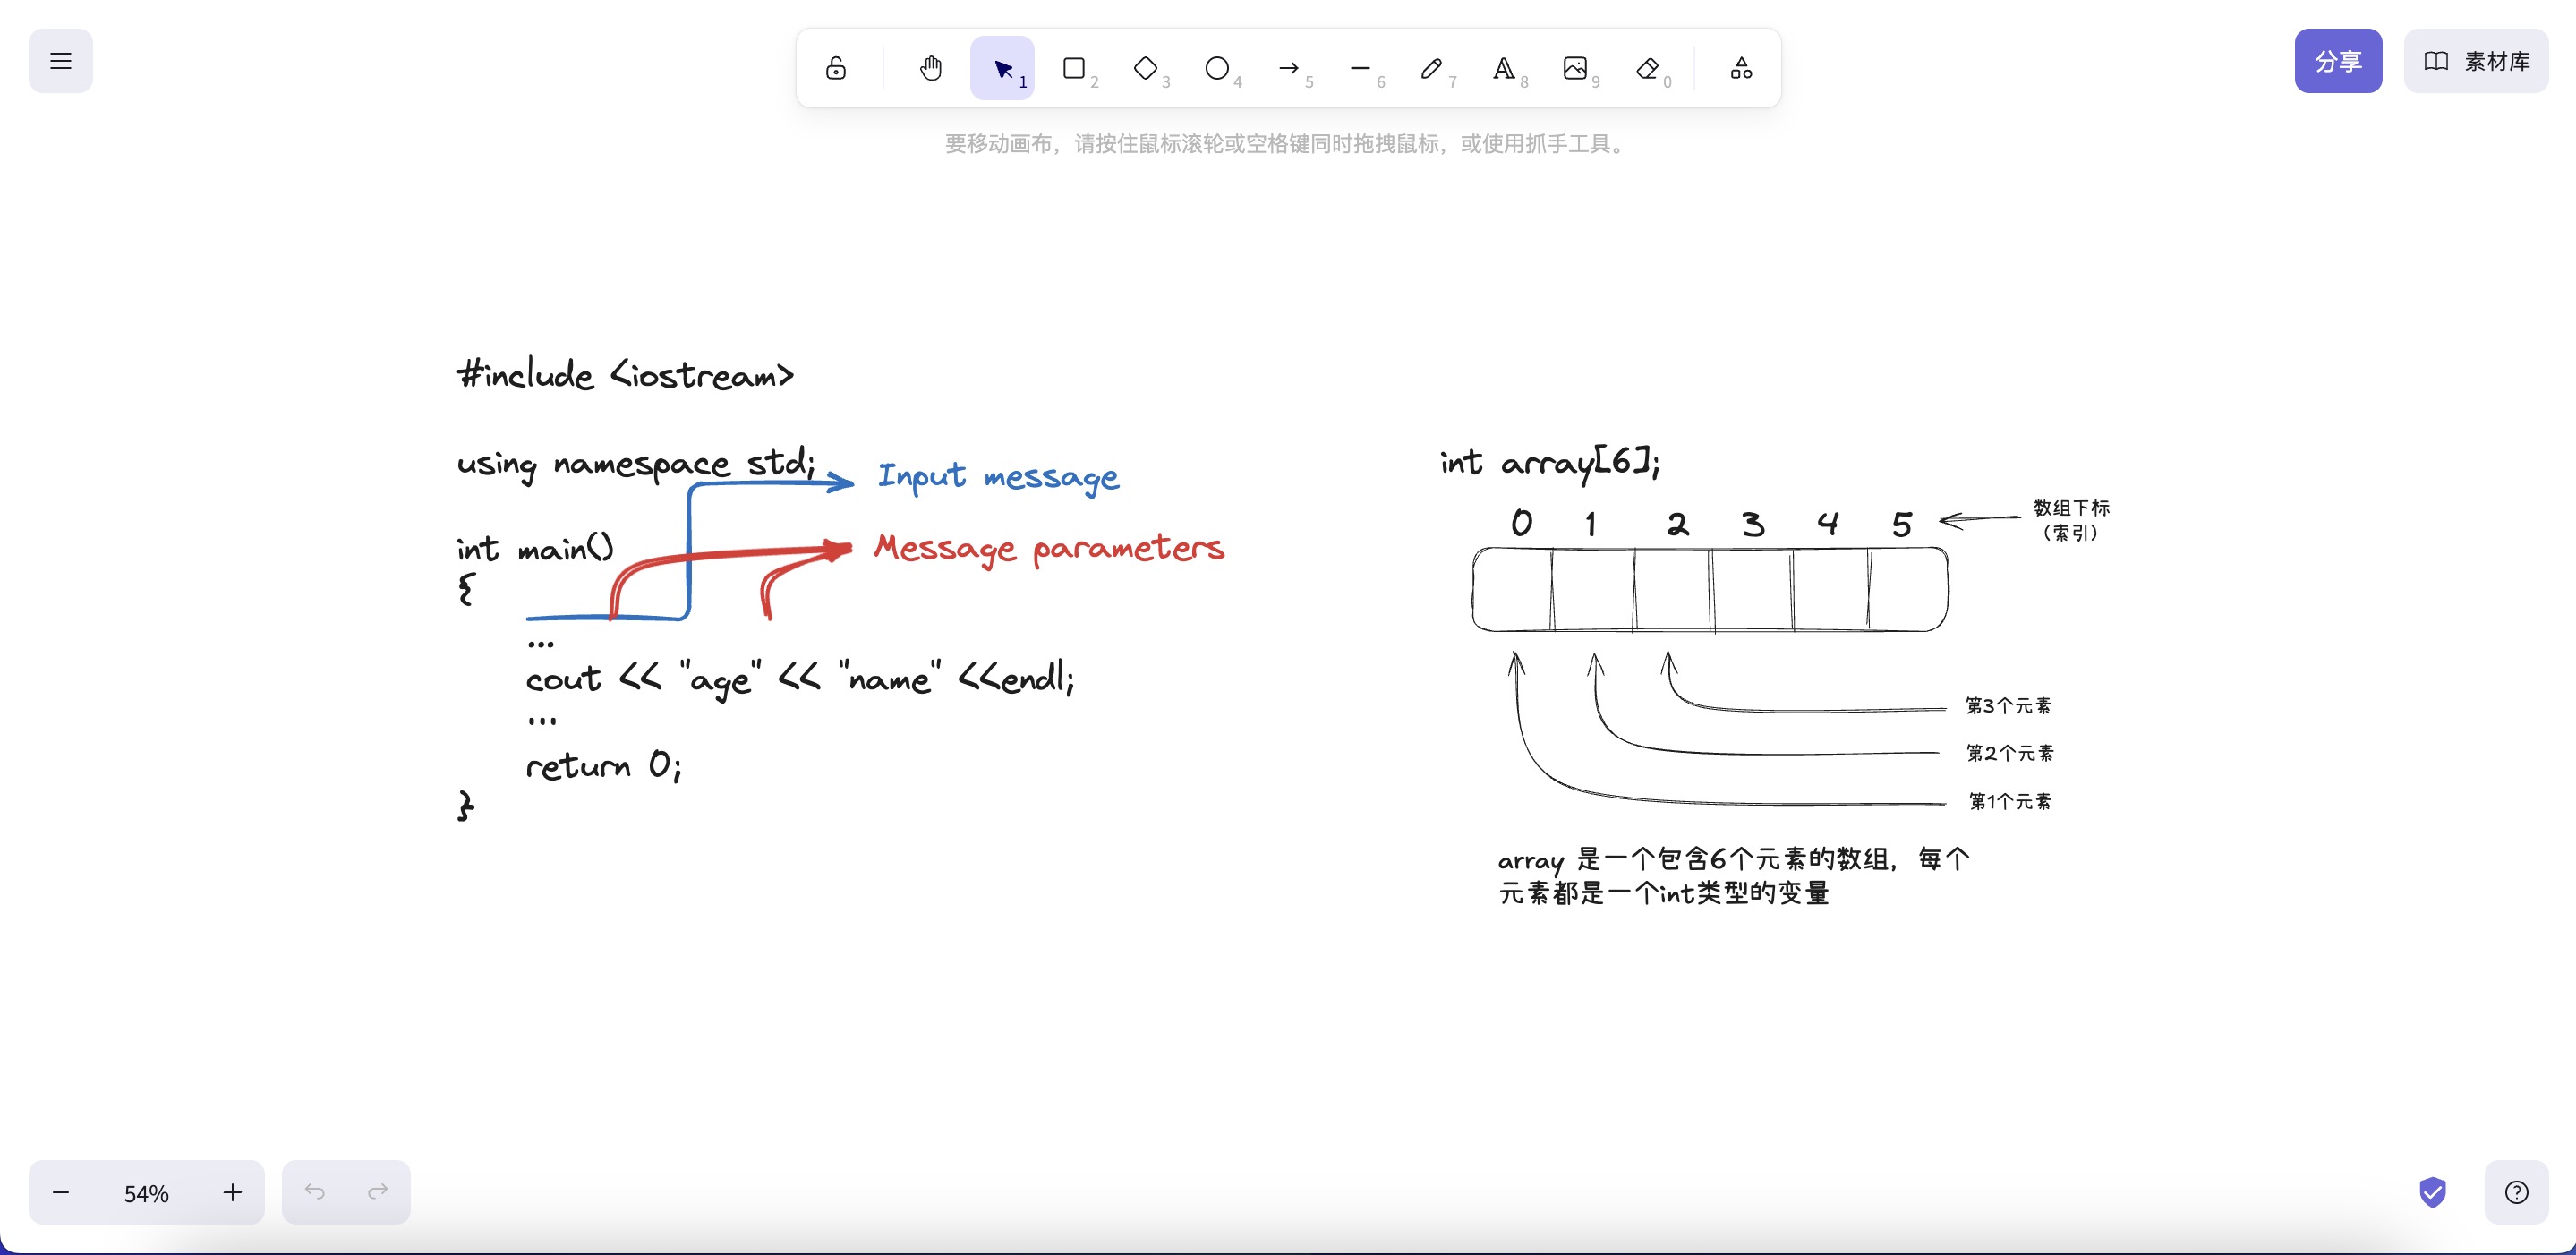 1
2
3
4
5
6
7
8
9
0
分享
素材库
要移动画布，请按住鼠标滚轮或空格键同时拖拽鼠标，或使用抓手工具。
#include <iostream>
using namespace std;
Input message
int main()
Message parameters
{
...
cout << "age" << "name" <<endl;
...
return 0;
}
int array[6];
0 1 2 3 4 5
数组下标
（索引）
第3个元素
第2个元素
第1个元素
array 是一个包含6个元素的数组，每个
元素都是一个int类型的变量
54%